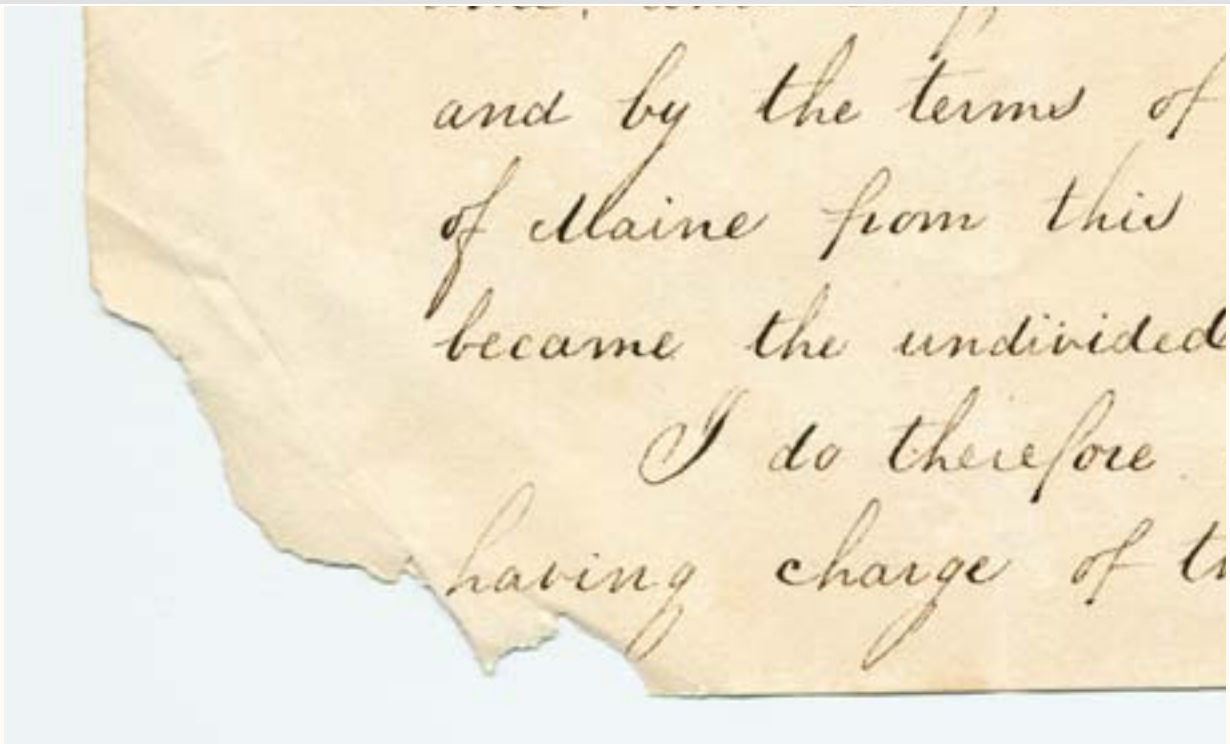 and by the terms of
of Maine from this
became the undivided
I do therefore
having charge of